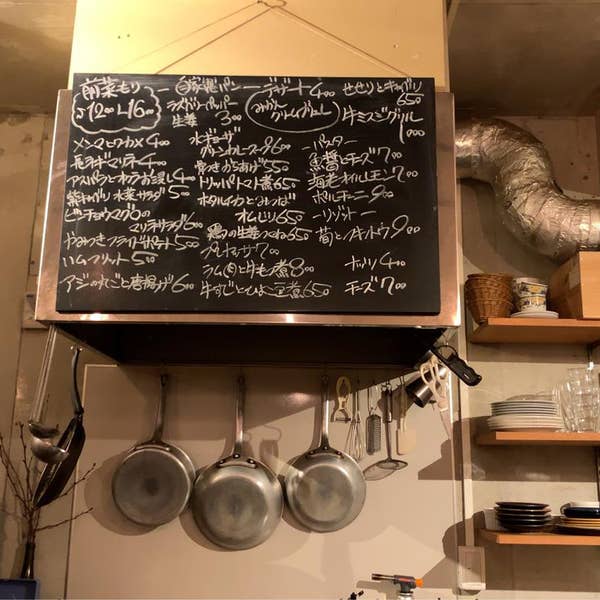 前菜もり
S1200 L1600
メンマとワカメ 400
長芋キマリネ 400
アスパラとホタテお浸し 400
紫キャベツ 水菜サラダ 500
ビンチョウマグロの
マリネサラダ 600
やみつきフライドポテト 500
ハムフリット 500
アジの丸ごと唐揚げ 600
自家製パン
ラズベリーペッパー
生姜 300
水ギョーザ
グリーンカレースープ 960
骨つきからあげ 550
トリッパトマト煮 650
ホタルイカとみつば
オムレツ 650
鶏の生姜つくね 650
プレオッサー 700
ラム肉と牛モツ煮 800
牛すじとひよこ豆煮 650
デザート 400
みかん
クリームブリュレ
せせりとキャベツ
650
牛ミスジグリル
1000
ーパスター
魚醤とチーズ 700
海老オイルレモン 700
ポルチーニ 900
ーリゾットー
筍とフキノトウ 900
ナッツ 400
チーズ 700